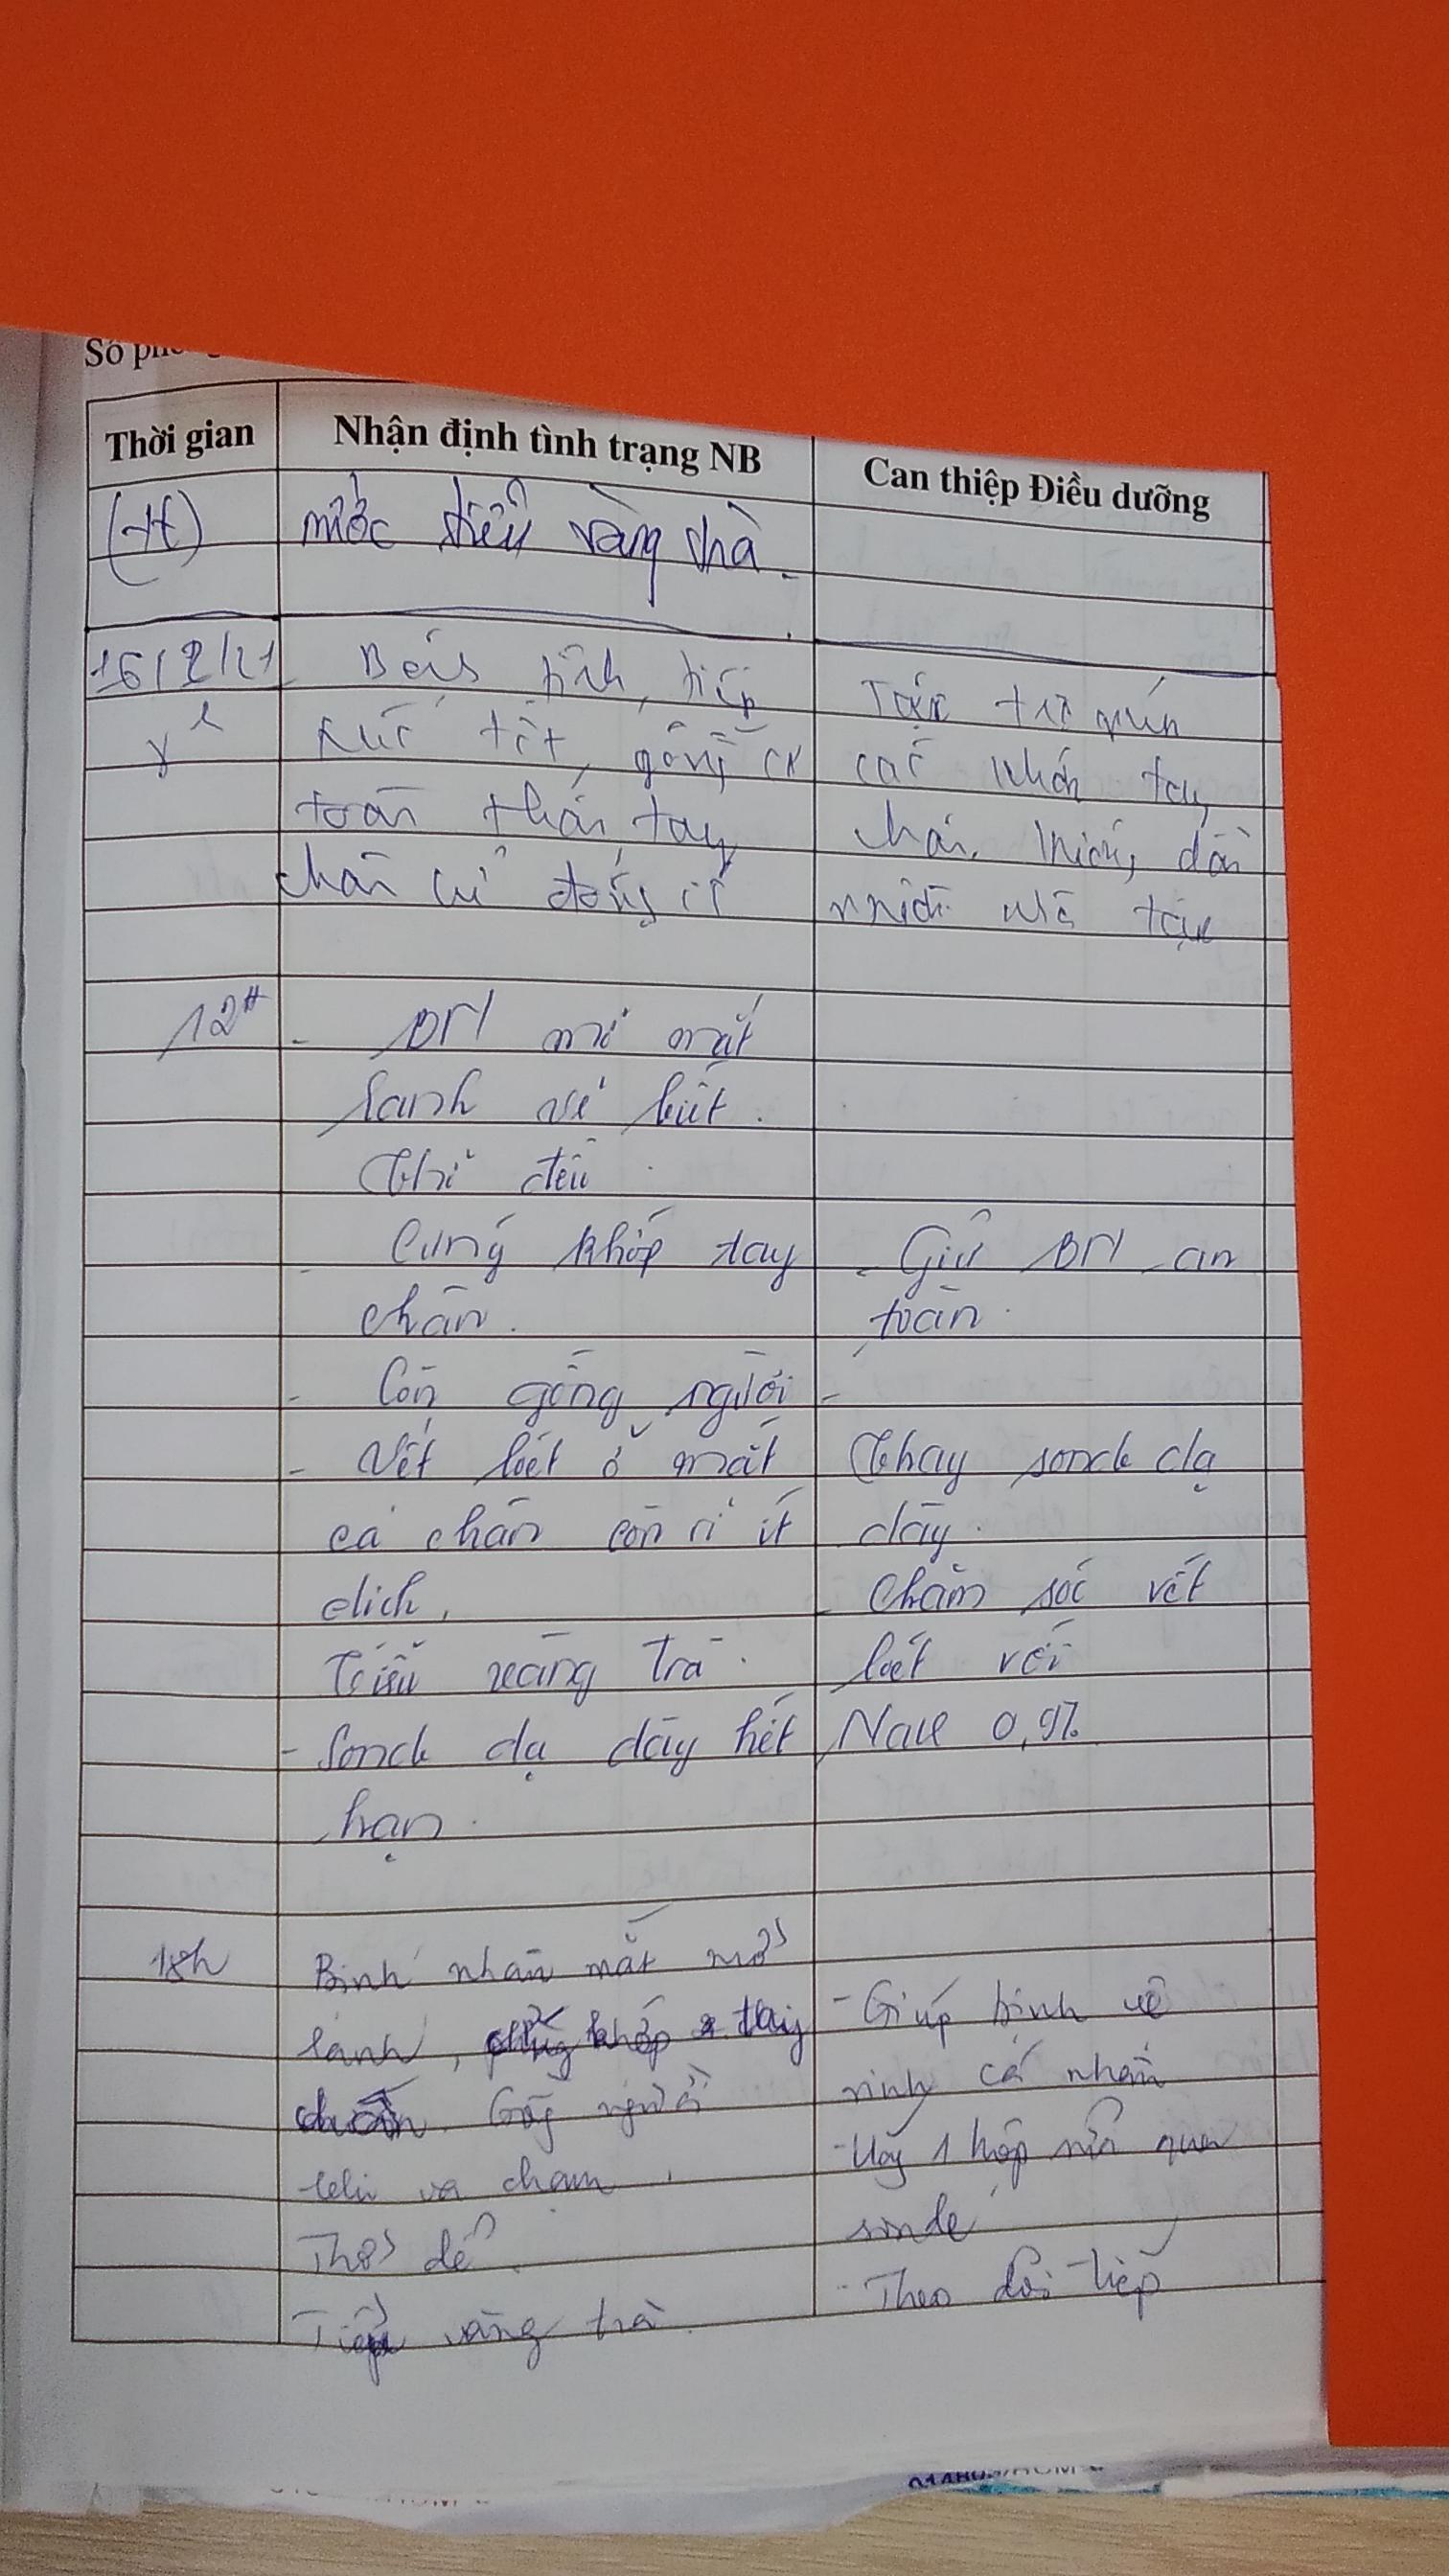 Số
Thời gian
Nhận định tình trạng NB
Can thiệp Điều dưỡng
(tt)
nước tiểu vàng trà.
16/2/21
tỉnh, tiếp
tốt, gồng
toàn thân, tay
chân cử động ít
tay
chân.
12H
- BN mở mắt
hanh vô hết.
Thở đều.
- Cứng khớp tay
chân.
- Còn gồng người
- Vết loét ở mắt
cá chân còn rỉ ít
dịch,
Tiểu vàng trà.
- Sonde dạ dày hết
hạn.
- Giữ BN an
toàn.
-
Thay sonde dạ
dày.
- Chăm sóc vết
loét với
NaCl 0,9%
18h
Bệnh nhân mắt mở
lanh, cứng khớp tay
chân. Gồng người
khi va chạm.
Thở dễ.
Tiểu vàng trà.
- Giúp bệnh vệ
sinh cá nhân
- Uống 1 hộp sữa qua
sonde
- Theo dõi tiếp